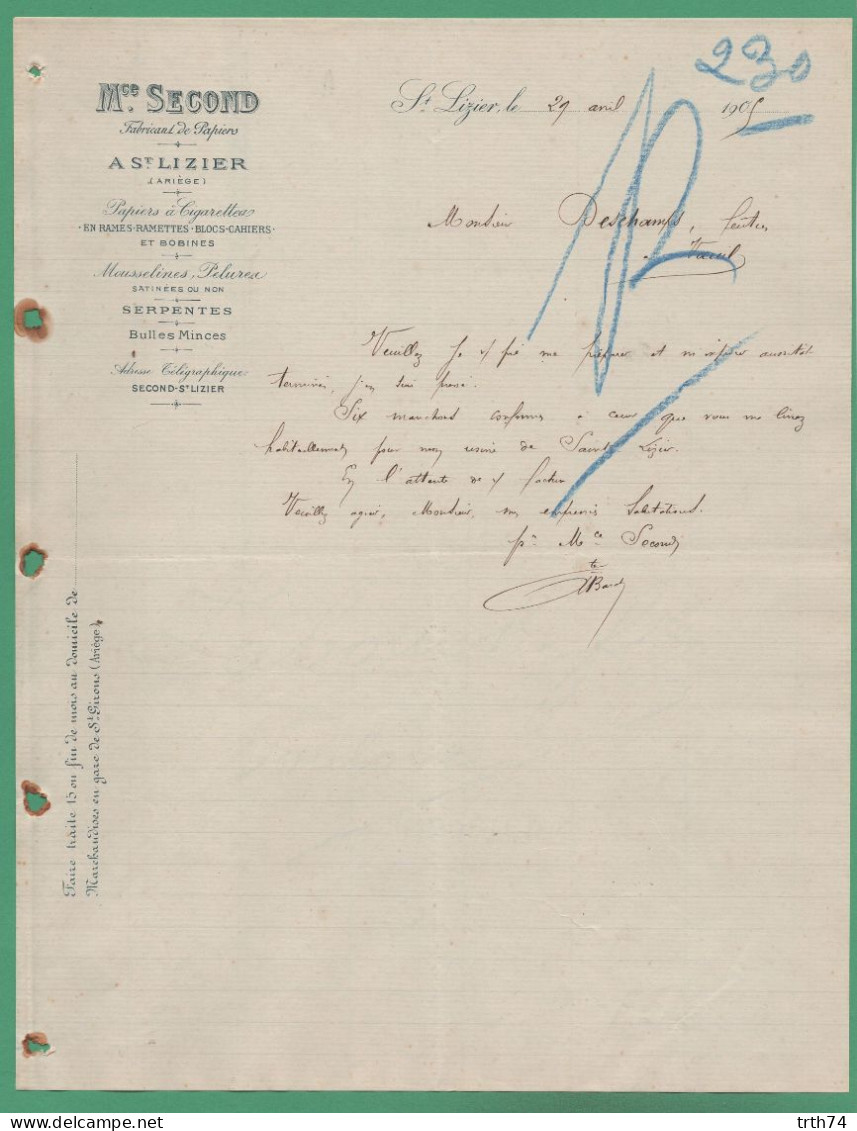 230
Mce. SECOND
Fabricant de Papiers
A ST. LIZIER
(ARIÈGE)
Papiers à Cigarettes
EN RAMES-RAMETTES-BLOCS-CAHIERS
ET BOBINES
Mousselines, Pelures
SATINÉES OU NON
SERPENTES
Bulles Minces
Adresse Télégraphique:
SECOND-ST LIZIER
St. Lizier, le 29 avril 1905
Monsieur Deschamps, feutres
Vueil
Veuillez je prie me préparer et m'expédier aussitôt
terminés, j'en suis pressé.
Six manchons conformes à ceux que vous me livrez
habituellement pour mon usine de Saint Lizier.
En l'attente de facture
Veuillez agréer, Monsieur, mes empressées Salutations.
pr. Mce Second
Faire traite 15 ou fin de mois au domicile de
Marchandises en gare de St. Girons (Ariège).
trth74